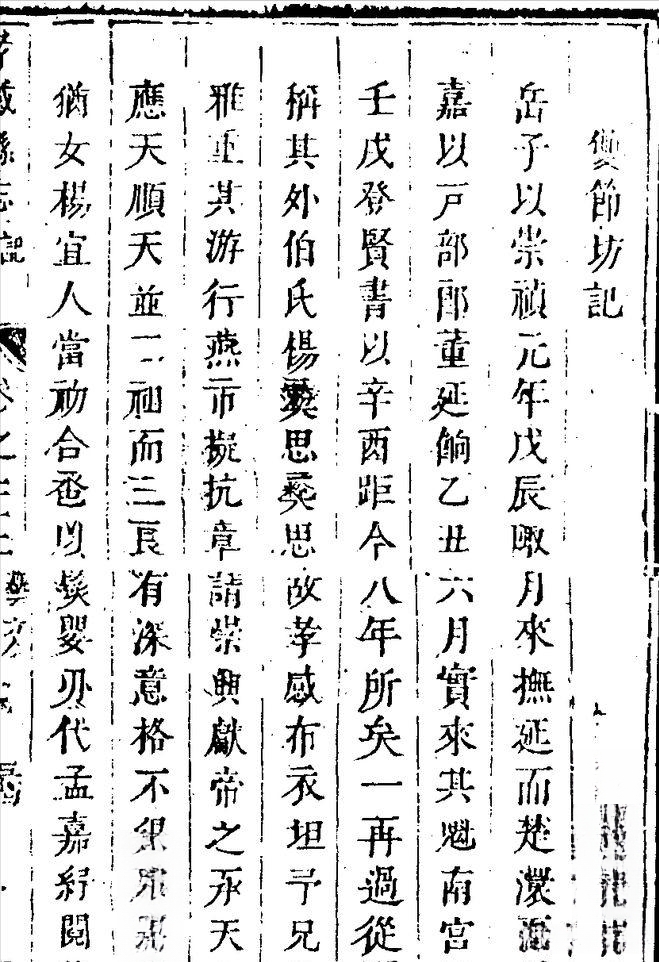 雙節坊記
岳子以崇禎元年戊辰陬月來撫延而楚澴
嘉以戸部郎董延餉乙丑六月實來其魁南宮
壬戌登賢書以辛酉距今八年所矣一再過從
稱其外伯氏楊思彛思故孝感布衣坦平兄
雅重其游行燕市擬抗章請崇興獻帝之承天
應天順天並二祖而三良有深意格不果
猶女楊宜人當初合卺以髮嬰刃代孟嘉紹閱
孝感縣志
卷之